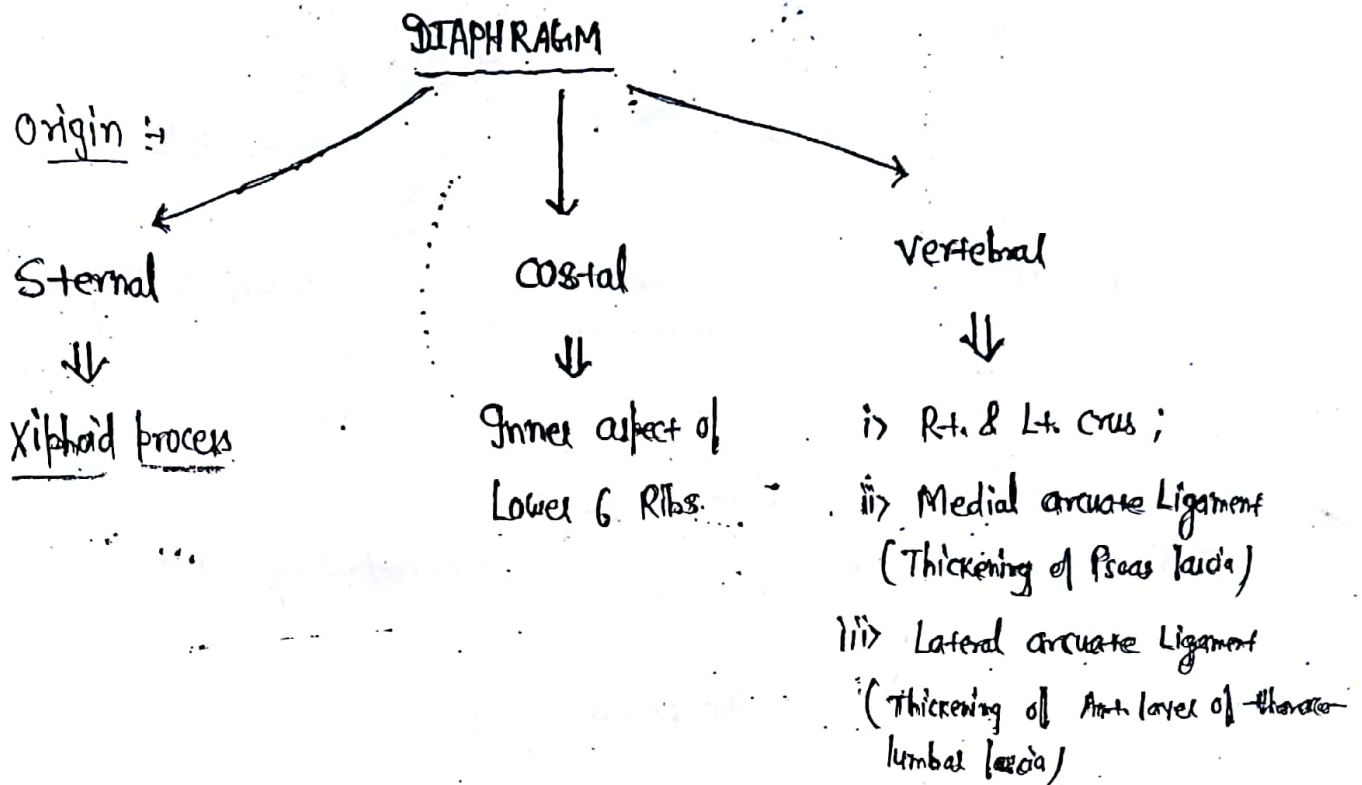 DIAPHRAGM
Origin :-
Sternal
Costal
Vertebral
⇓
⇓
⇓
Xiphoid process
Inner aspect of
Lower 6 Ribs.
i> Rt. & Lt. crus ;
ii> Medial arcuate Ligament
(Thickening of Psoas fascia)
iii> Lateral arcuate Ligament
(Thickening of Ant. layer of thoraco
lumbar fascia)